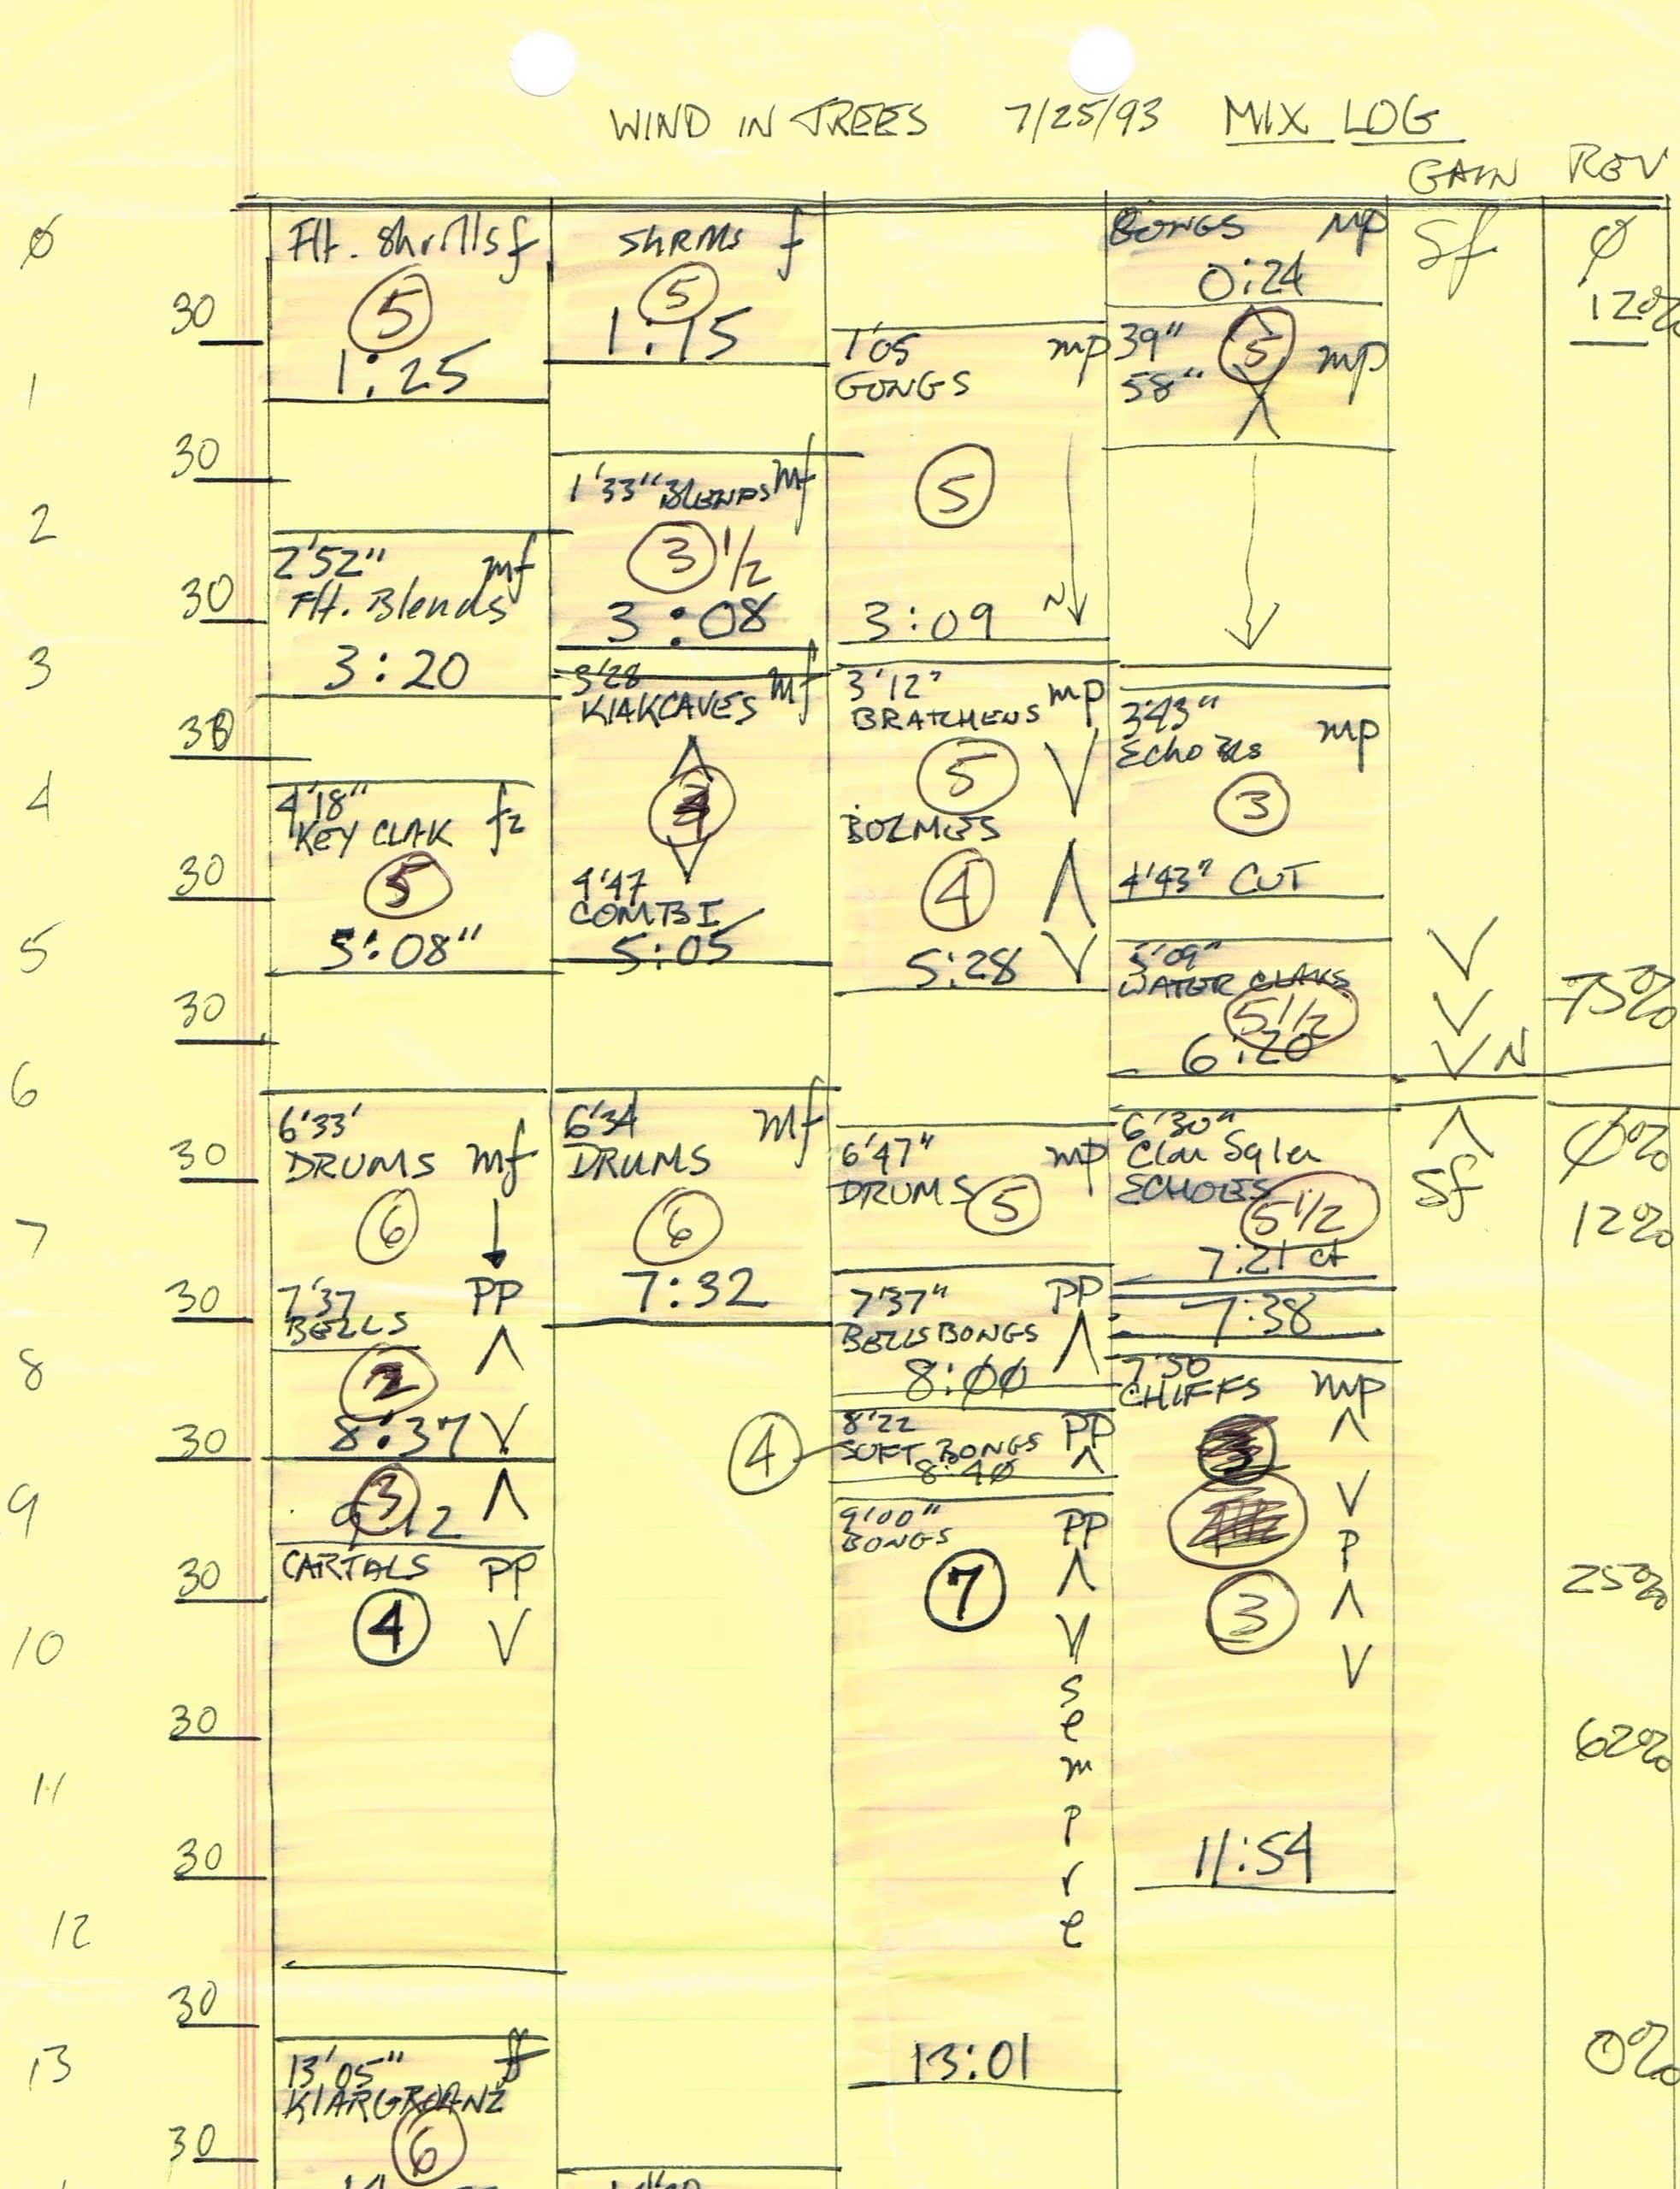 WIND IN TREES 7/25/93 MIX LOG
GAIN REV
Ø
Flt. Shrills f
ShRMs f
BONGS mp
Sf
Ø
5
5
0:24
12%
30
1:25
1:15
1'05 mp
GONGS
39" 5 mp
58"
1
30
1'33" BLENDS mf
5
2
3 1/2
2'52" mf
Flt. Blends
30
3:08
3:09 N
3
3:20
3'28 mf
KIAKCAVES
3'12" mp
BRATCHENS
3'43" mp
30
5
3
4
4'18"
KEY CLAK fz
BOZMOS
30
5
4'47
COMBI
4
4'43" CUT
5
5:08"
5:05
5:28
5'09"
WATER CLAKS
30
5 1/2
75%
6:20
N
6
6'33'
DRUMS mf
6'34 mf
DRUMS
6'47" mp
DRUMS
6'30"
ECHOES
Sf
Ø%
30
6
6
5
5 1/2
12%
7
7:32
7:21 ct
30
7'37 PP
BELLS
7'37" PP
BELLS BONGS
7:38
8
2
8:ØØ
7'50
CHIFFS mp
30
8:37
4
8'22 PP
SOFT BONGS
8:4Ø
3
9
3
9:12
9'00" PP
BONGS
P
30
CARTALS PP
7
3
25%
10
4
sempre
30
62%
11
30
11:54
12
30
13
13'05" ff
KIARGROANZ
13:01
0%
30
6